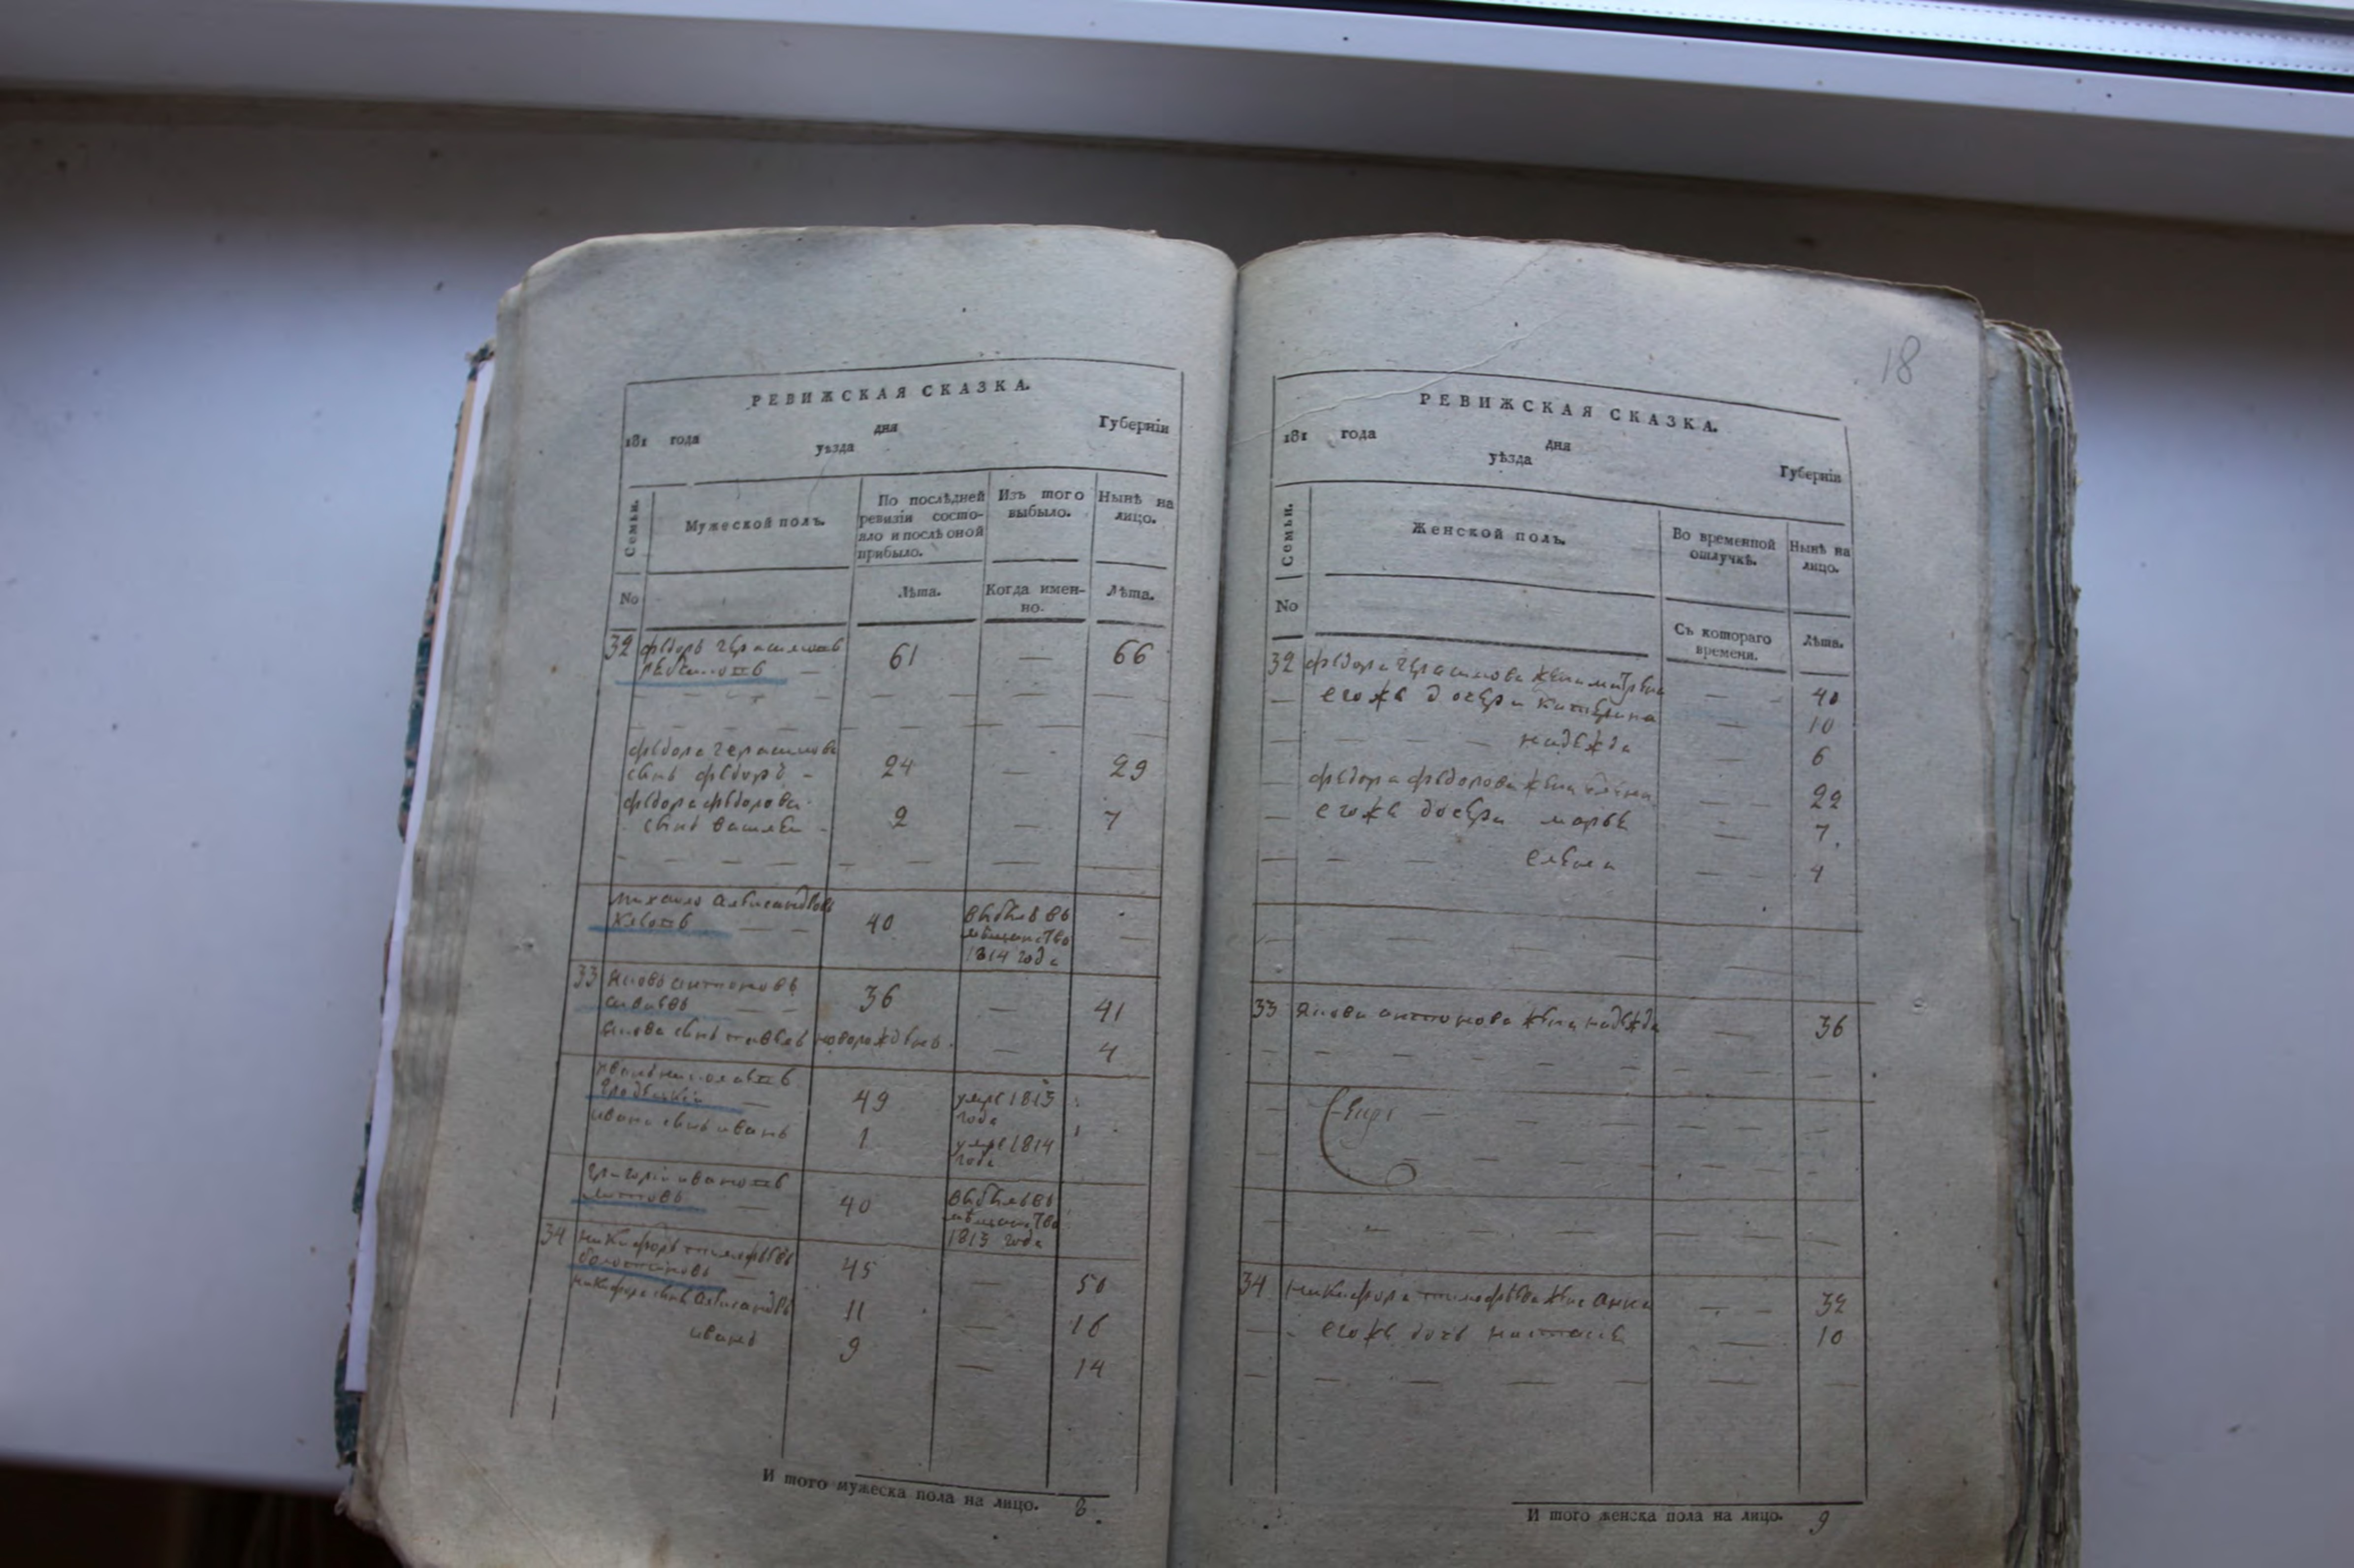 РЕВИЖСКАЯ СКАЗКА.
181 года дня Губерніи
уѣзда
Семьи.
Мужеской полъ.
По послѣдней
ревизіи состо-
яло и послѣ оной
прибыло.
Изъ того
выбыло.
Нынѣ на
лицо.
No
Лѣта.
Когда имен-
но.
Лѣта.
32 Федоръ Герасимовъ 61 — 66
Федора Герасимова
сынъ Федоръ 24 — 29
Федора Федорова
сынъ Василей 2 — 7
Михайло Александровъ
40 выбылъ въ
мѣщанство
1814 года
33 Яковъ Антоновъ
36 — 41
Якова сынъ Павелъ новорожденъ — 4
49 умре 1813
года
Ивана сынъ Иванъ 1 умре 1814
года
Григорій Ивановъ
40 выбылъ въ
мѣщанство
1813 года
34 Никифоръ Тимофѣевъ
45 — 50
Никифора сынъ Александръ 11 — 16
Иванъ 9 — 14
И того мужеска пола на лицо. 8.
18
РЕВИЖСКАЯ СКАЗКА.
181 года дня Губерніи
уѣзда
Семьи.
Женской полъ.
Во временной
отлучкѣ.
Нынѣ на
лицо.
No
Съ котораго
времени.
Лѣта.
32 Федора Герасимова жена Матрена — 40
его же дочери Катерина — 10
Надежда 6
Федора Федорова жена — 22
его же дочери Марья — 7
Елена — 4
33 Якова Антонова жена Надежда — 36
34 Никифора Тимофѣева жена Анна — 32
его же дочь Настасья — 10
И того женска пола на лицо. 9